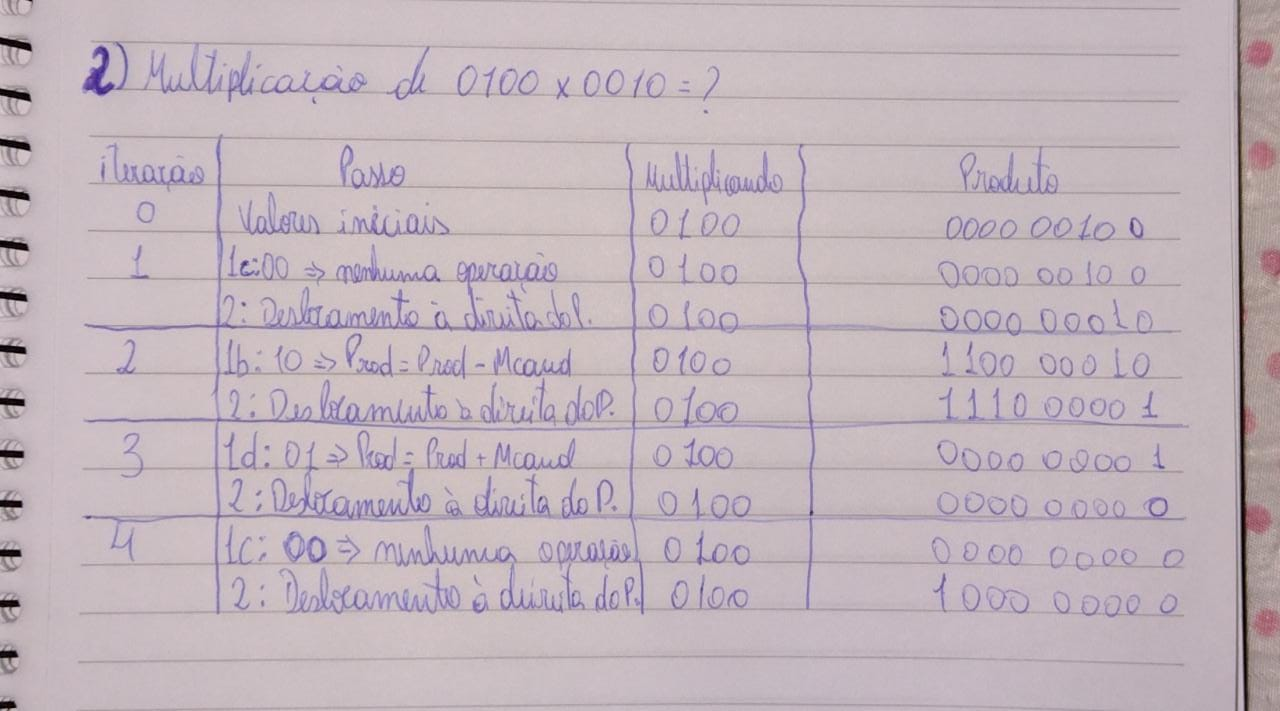 2) Multiplicação de 0100 x 0010 = ?
iteração Passo Multiplicando Produto
0 Valores iniciais 0100 0000 0010 0
1 1c:00 => nenhuma operação 0100 0000 0010 0
2: Deslocamento à direita do P. 0100 0000 0001 0
2 1b: 10 => Prod = Prod - Mcand 0100 1100 0001 0
2: Deslocamento à direita do P. 0100 1110 0000 1
3 1d: 01 => Prod = Prod + Mcand 0100 0000 0000 1
2: Deslocamento à direita do P. 0100 0000 0000 0
4 1c: 00 => nenhuma operação 0100 0000 0000 0
2: Deslocamento à direita do P. 0100 1000 0000 0